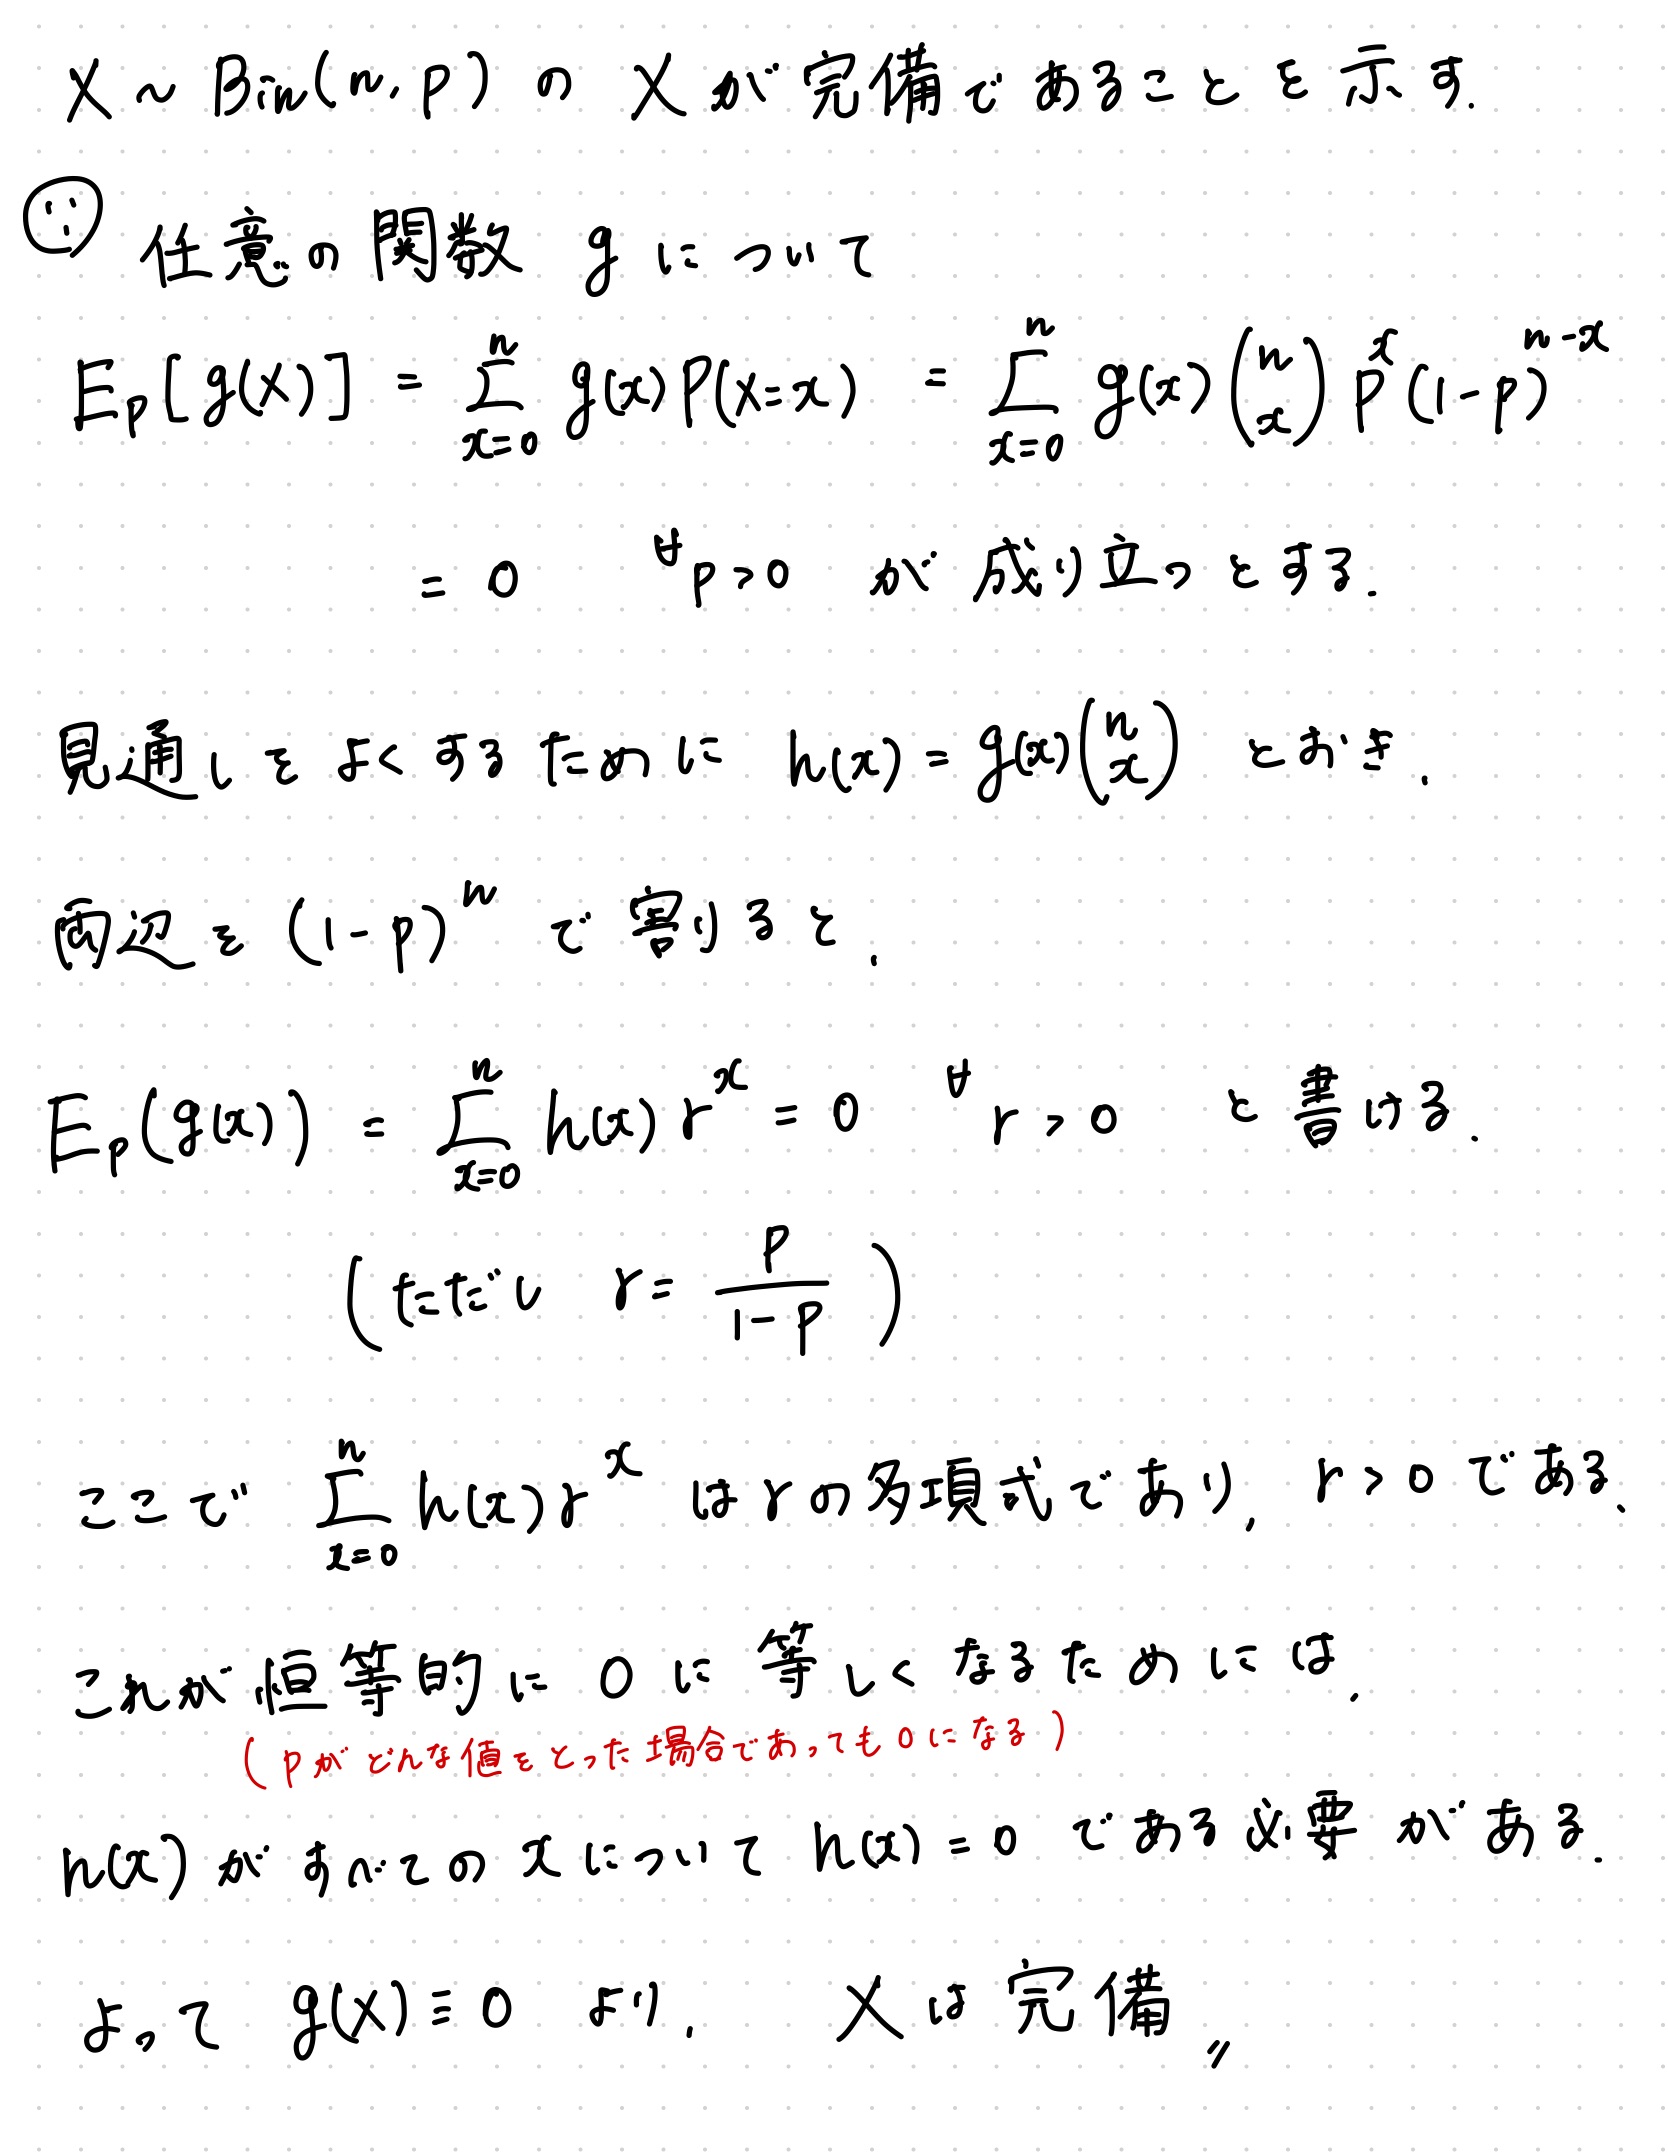 X ~ Bin(n, p) の X が完備であることを示す.
任意の関数 g について
E_p[g(X)] = \sum_{x=0}^{n} g(x) P(X=x) = \sum_{x=0}^{n} g(x) \binom{n}{x} p^x (1-p)^{n-x}
= 0 ∀p>0 が成り立つとする.
見通しをよくするために h(x) = g(x)\binom{n}{x} とおき,
両辺を (1-p)^n で割りると,
E_p(g(x)) = \sum_{x=0}^{n} h(x) r^x = 0 ∀r>0 と書ける.
(ただし r = \frac{p}{1-p})
ここで \sum_{x=0}^{n} h(x) r^x は r の多項式であり, r>0 である.
これが恒等的に 0 に等しくなるためには,
(pがどんな値をとった場合であっても0になる)
h(x) がすべての x について h(x) = 0 である必要がある.
よって g(X) ≡ 0 より, X は完備〃